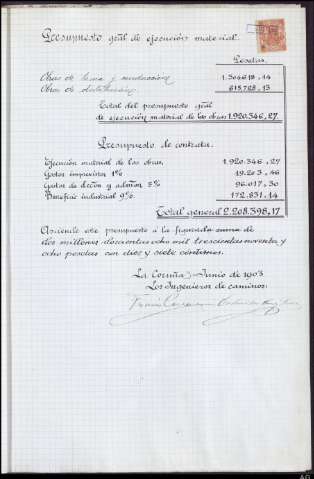 Presupuesto gral de ejecución material.
Pesetas.
Obras de toma y conducción 1.304.618,14
Obras de distribución 615.728,13
Total del presupuesto gral
de ejecución material de las obras 1.920.346,27
Presupuesto de contrata.
Ejecución material de las obras. 1.920.346,27
Gastos imprevistos 1% 19.203,46
Gastos de dirección y admón 5% 96.017,30
Beneficio industrial 9% 172.831,14
Total general 2.208.398,17
Asciende este presupuesto á la figurada suma de
dos millones doscientas ocho mil trescientas noventa y
ocho pesetas con diez y siete céntimos.
La Coruña Junio de 1903
Los Ingenieros de caminos: